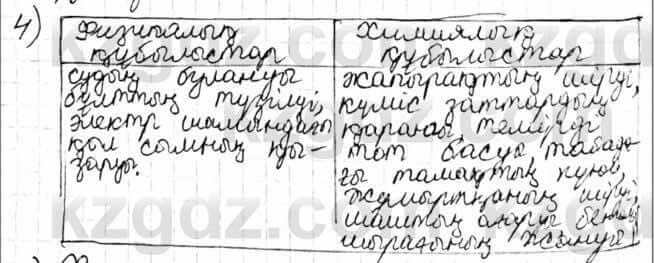 4)
Физикалық
құбылыстар
Химиялық
құбылыстар
судың булануы
бұлттың түзілуі,
электр шамындағы
қыл сымның қы-
заруы.
жапырақтың шіруі,
күміс заттардың
қараюы, темірді
тот басуы, табада-
ғы тамақтың күюі,
жұмыртқаның шіруі,
шаштың ағаруы
шырағының жануы
kzgdz.com